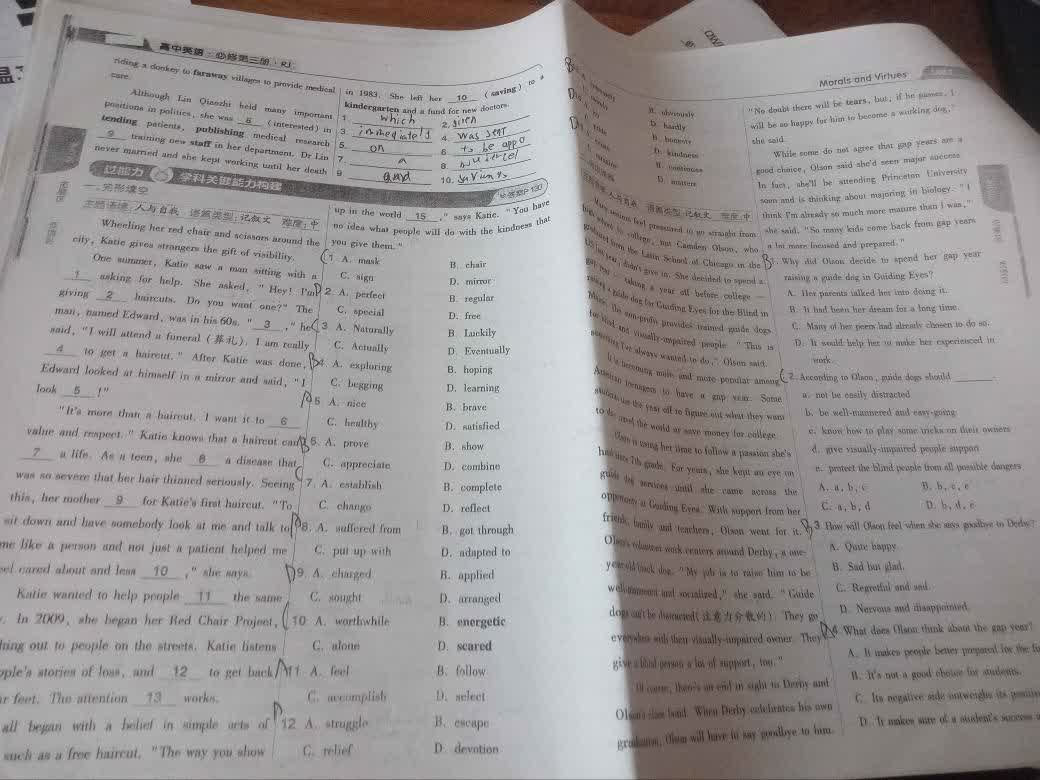 高中英语·必修第三册·RJ
riding a donkey to faraway villages to provide medical
care.
Although Lin Qiaozhi held many important
positions in politics, she was 8 (interested) in
tending patients, publishing medical research
9 training new staff in her department. Dr Lin
never married and she kept working until her death
in 1983. She left her 10 (saving) to a
kindergarten and a fund for new doctors.
1. which 2. given
3. immediately 4. was sent
5. on 6. to be appo
7. a 8.
9. and 10.
以能力 学科关键能力构建
答案P
一、完形填空
主题语境:人与自我 语篇类型:记叙文 难度:中
Wheeling her red chair and scissors around the
city, Katie gives strangers the gift of visibility.
One summer, Katie saw a man sitting with a
1 asking for help. She asked, "Hey! I'm
giving 2 haircuts. Do you want one?" The
man, named Edward, was in his 60s. "3," he
said, "I will attend a funeral (葬礼). I am really
4 to get a haircut." After Katie was done,
Edward looked at himself in a mirror and said, "I
look 5!"
"It's more than a haircut. I want it to 6
value and respect." Katie knows that a haircut can
7 a life. As a teen, she 8 a disease that
was so severe that her hair thinned seriously. Seeing
this, her mother 9 for Katie's first haircut. "To
sit down and have somebody look at me and talk to
me like a person and not just a patient helped me
feel cared about and less 10," she says.
Katie wanted to help people 11 the same
. In 2009, she began her Red Chair Project,
hing out to people on the streets. Katie listens
ople's stories of loss, and 12 to get back
ir feet. The attention 13 works.
all began with a belief in simple acts of
such as a free haircut. "The way you show
up in the world 15," says Katie. "You have
no idea what people will do with the kindness that
you give them."
1. A. mask B. chair
C. sign D. mirror
2. A. perfect B. regular
C. special D. free
3. A. Naturally B. Luckily
C. Actually D. Eventually
4. A. exploring B. hoping
C. begging D. learning
5. A. nice B. brave
C. healthy D. satisfied
6. A. prove B. show
C. appreciate D. combine
7. A. establish B. complete
C. change D. reflect
8. A. suffered from B. got through
C. put up with D. adapted to
9. A. charged B. applied
C. sought D. arranged
10. A. worthwhile B. energetic
C. alone D. scared
11. A. feel B. follow
C. accomplish D. select
12. A. struggle B. escape
C. relief D. devotion
Morals and Virtues
B. obviously
D. hardly
B. honesty
D. kindness
B. continues
D. matters
人与自我 语篇类型:记叙文 难度:中
Many seniors feel pressured to go straight from
high school to college, but Camden Olson, who
graduated from the Latin School of Chicago in the
US last year, didn't give in. She decided to spend a
gap year — taking a year off before college —
raising a guide dog for Guiding Eyes for the Blind in
The non-profit provides trained guide dogs
for blind and visually-impaired people. "This is
something I've always wanted to do," Olson said.
It is becoming more and more popular among
American teenagers to have a gap year. Some
students use the year off to figure out what they want
to do, travel the world or save money for college.
Olson is using her time to follow a passion she's
had since 7th grade. For years, she kept an eye on
guide dog services until she came across the
opportunity at Guiding Eyes. With support from her
friends, family and teachers, Olson went for it.
Olson's volunteer work centers around Derby, a one-
year-old black dog. "My job is to raise him to be
well-mannered and socialized," she said. "Guide
dogs can't be distracted(注意力分散的). They go
everywhere with their visually-impaired owner. They
give a blind person a lot of support, too."
Of course, there's an end in sight to Derby and
Olson's time bond. When Derby celebrates his own
graduation, Olson will have to say goodbye to him.
"No doubt there will be tears, but, if he passes, I
will be so happy for him to become a working dog,"
she said.
While some do not agree that gap years are a
good choice, Olson said she'd seen major success.
In fact, she'll be attending Princeton University
soon and is thinking about majoring in biology. "I
think I'm already so much more mature than I was,"
she said. "So many kids come back from gap years
a lot more focused and prepared."
1. Why did Olson decide to spend her gap year
raising a guide dog in Guiding Eyes?
A. Her parents talked her into doing it.
B. It had been her dream for a long time.
C. Many of her peers had already chosen to do so.
D. It would help her to make her experienced in
work.
2. According to Olson, guide dogs should ______.
a. not be easily distracted
b. be well-mannered and easy-going
c. know how to play some tricks on their owners
d. give visually-impaired people support
e. protect the blind people from all possible dangers
A. a, b, c B. b, c, e
C. a, b, d D. b, d, e
3. How will Olson feel when she says goodbye to Derby?
A. Quite happy.
B. Sad but glad.
C. Regretful and sad.
D. Nervous and disappointed.
4. What does Olson think about the gap year?
A. It makes people better prepared for the fu
B. It's not a good choice for students.
C. Its negative side outweighs its positive
D. It makes sure of a student's success